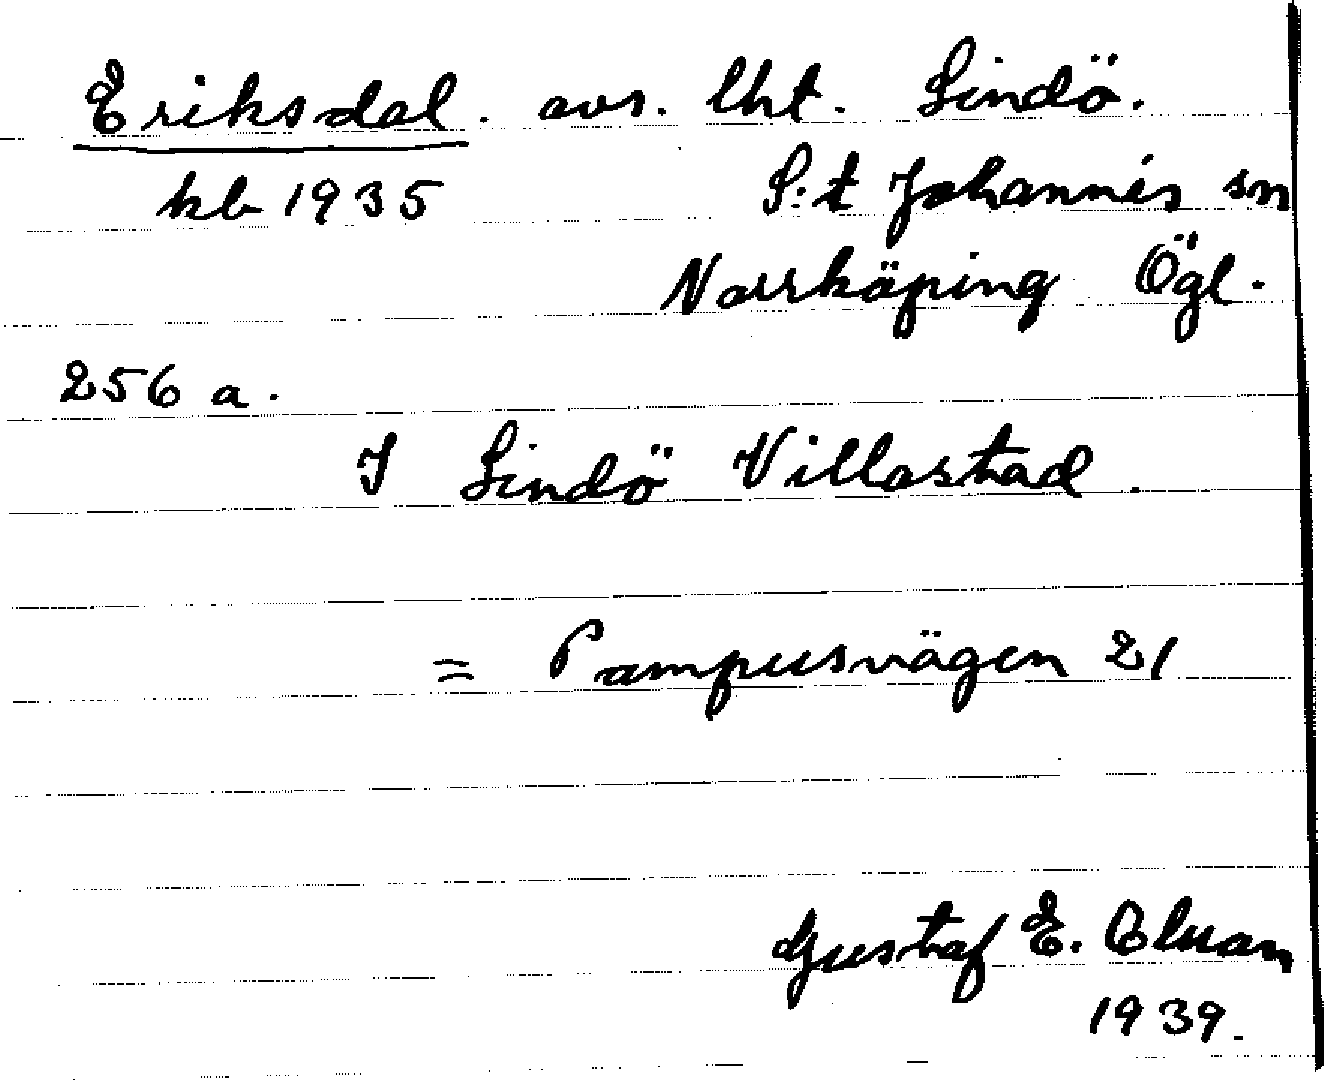 Eriksdal. avs. lht. Lindö.
kb 1935 S:t Johannis sn
Norrköping Ögl.
256 a.
I Lindö Villastad.
= Pampusvägen 21
Gustaf E. Cluan
1939.